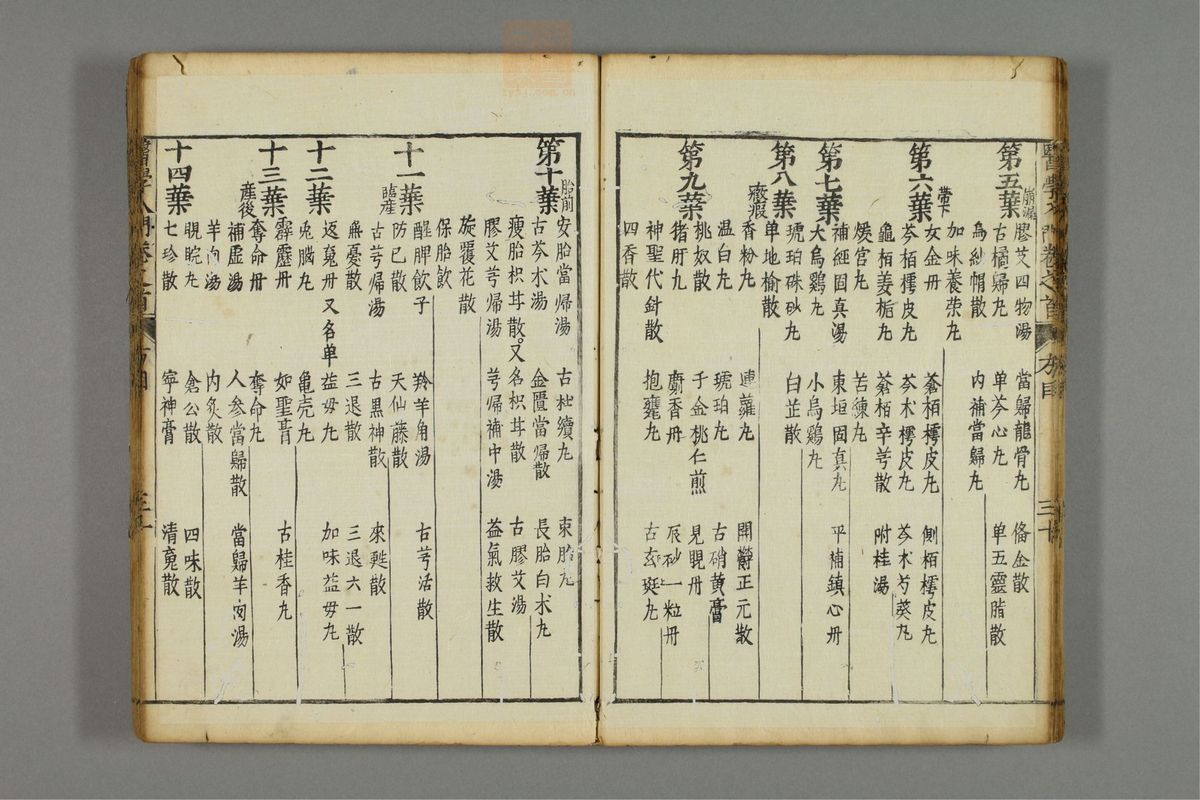 醫學入門卷之首 方目 三十
第五葉 崩漏 膠艾四物湯 當歸龍骨丸 俻金散
古橘歸丸 單芩心丸 單五靈脂散
烏紗帽散 內補當歸丸
帶下 加味養荣丸
第六葉 女金丹 蒼栢樗皮丸 側栢樗皮丸
芩栢樗皮丸 芩术樗皮丸 芩术芍葵丸
龜栢姜栀丸 蒼栢辛芎散 附桂湯
煖宮丸 苦練丸
第七葉 補經固真湯 東垣固真丸 平補鎮心丹
大烏鷄丸 小烏鷄丸
琥珀硃砂丸 白芷散
第八葉 單地榆散
癥瘕 香粉丸 連蘿丸 開鬱正元散
温白丸 琥珀丸 古硝黄膏
桃奴散 千金桃仁煎 見晛丹
第九葉 猪肝丸 麝香丹 辰砂一粒丹
神聖代針散 抱甕丸 古玄斑丸
四香散
第十葉 胎前 安胎當㷌湯 古杜續丸 束胎丸
古芩术湯 金匱當㷌散 長胎白术丸
瘦胎枳甘散。又名枳甘散 古膠艾湯
膠艾芎歸湯 芎歸補中湯 益氣救生散
旋覆花散
保胎飲
十一葉 醒脾飲子 羚羊角湯 古芎活散
臨產 防已散 天仙藤散
古芎歸湯 古黒神散 來甦散
無憂散 三退散 三退六一散
十二葉 返䰟丹又名单益毋丸 加味益毋丸
兎腦丸 龟壳丸
十三葉 霹靂丹 如聖膏 古桂香丸
產後 奪命丹 奪命丸
補虛湯 人参當歸散 當歸羊肉湯
羊肉湯 內灸散
十四葉 睍睆丸 倉公散 四味散
七珍散 寧神膏 清䰟散
醫學入門卷之首 方目 三十